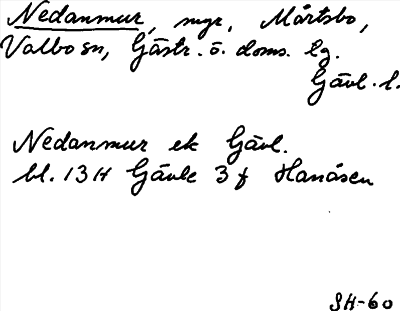 Nedanmur, mgr, Mårtsbo,
Valbo sn, Gästr. ö. doms. lg.
Gävl. l.
Nedanmur ek Gävl.
bl. 13H Gävle 3f Hanåsen
SH-60